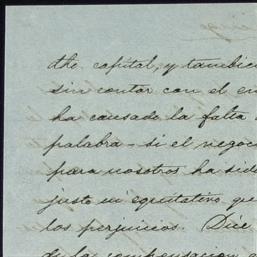 the capital, y tambien
sin contar con el en
ha causado la falta
palabra - si el negoc
para nosotros ha sid
justo ni equitativo que
los perjuicios. Dice
de la compensacion